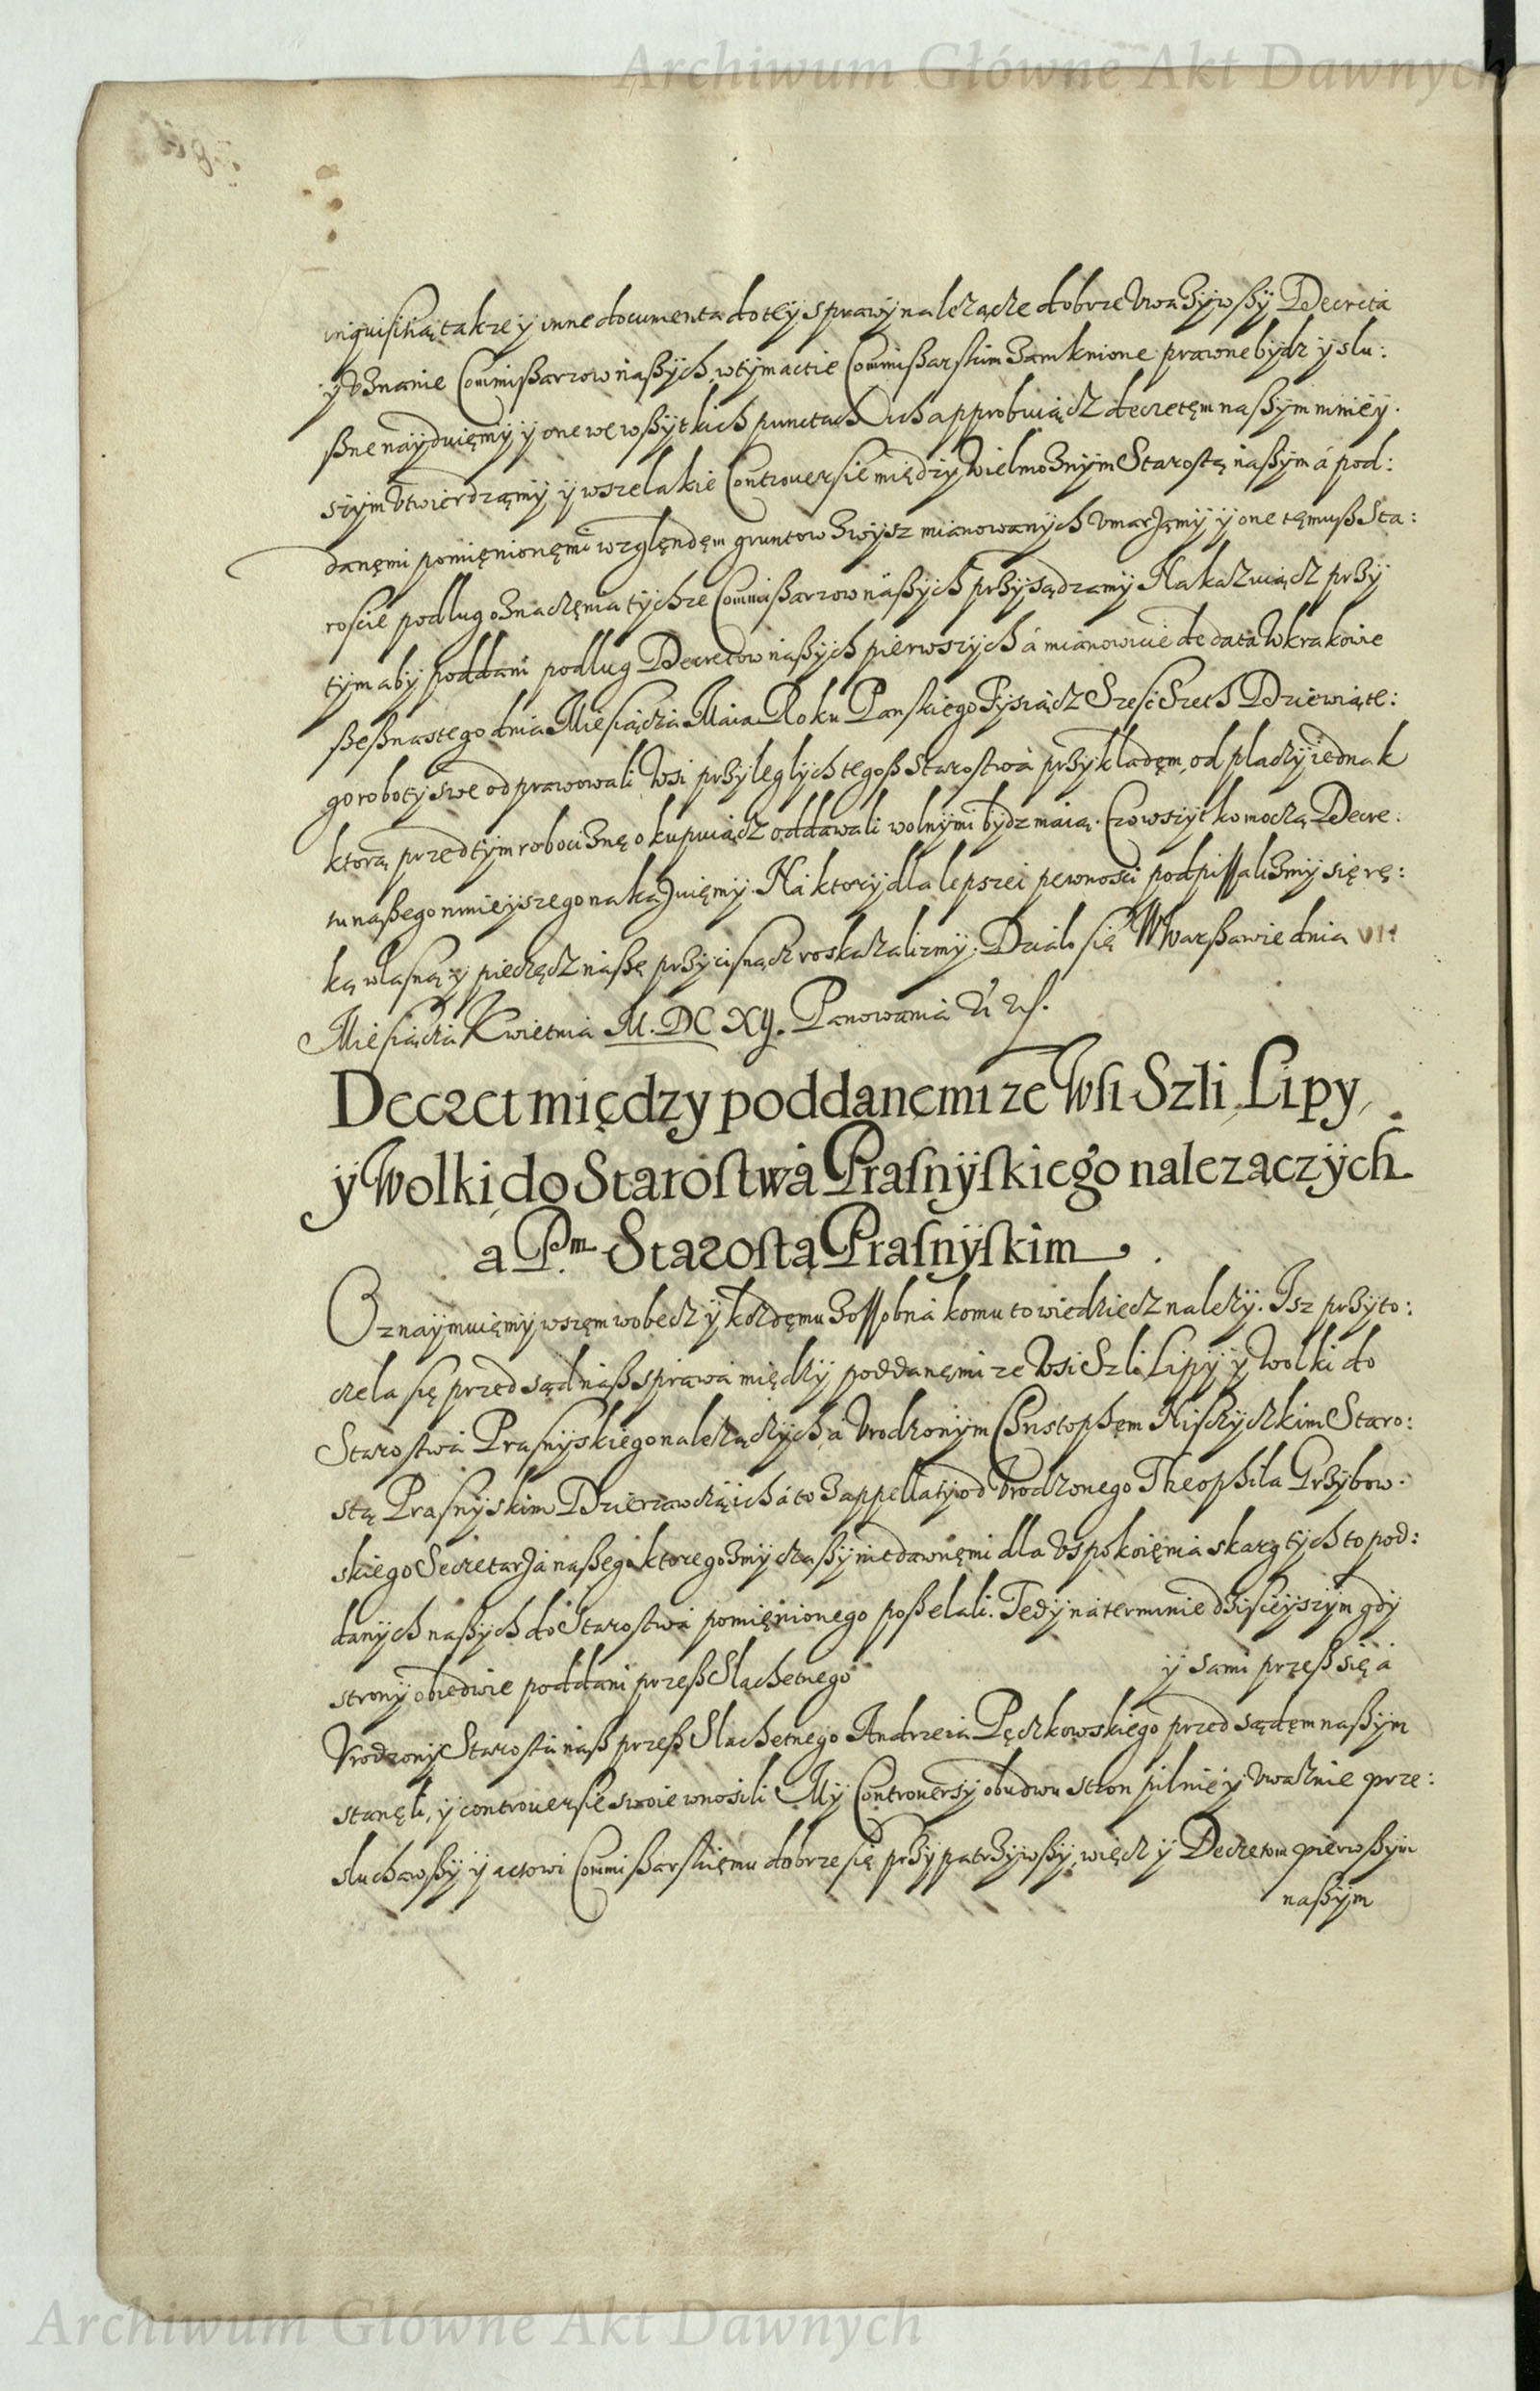 Archiwum Główne Akt Dawnych
inquisitią takze y inne documenta do tey sprawy nalezącze dobrze Uwazÿwßÿ Decreta
ÿ Uznanie Commißarzow naßych, w tÿm actie Commißarskim zamknione prawne bydz ÿ slu:
ßne naÿduięmÿ ÿ one we wßÿtkich punctach ich approbuiącz decretęm naßÿm ninieÿ.
szÿm Utwierdzamÿ ÿ wszelakie Controuersie międzÿ Wielmoznÿm Starostą naßÿm á pod:
danęmi pomięnionęmi względęm gruntow zwÿsz mianowanÿch Umarzamÿ ÿ one tęmuß Sta:
roscie podlug oznaczęnia tÿchze Commißarzow naßÿch przÿsądzamÿ Nakazuiącz przÿ
tÿm abÿ poddani podlug Decretow naßÿch pierwszÿch á mianowicie de data W krakowie
ßeßnastego dnia Miesiącza Maia Roku Panskiego Tÿsiącz Szesc Seth Dziewiąte:
go robotÿ swe odprawowali Wsi przÿleglÿch tegoß Starostwa przÿkladęm, od placzÿ iednak
ktorą przedtÿm robociznę okupuiącz oddawali wolnÿmi bÿdz maią. Czo wszÿtko moczą Decre:
tu naßego ninieÿszego nakazuięmÿ. Na ktorÿ dla lepszei pewnosci podpissalizmÿ się rę:
ką wlasną ÿ pieczęcz naßę przÿcisnącz roskazalizmÿ. Dzialo się W Warßawie dnia VII
Miesiącza Kwietnia M. DC XIJ. Panowania
Decret między poddanemi ze Wsi Szli, Lipy,
ÿ Wolki do Starostwa Prasnÿskiego nalezaczÿch
a Pm Starostą Prasnÿskim.
Oznaÿmuięmÿ wszęm wobecz ÿ kozdęmu zossobna komu to wiedziecz nalezÿ. Isz przÿto:
czela się przed sąd naß sprawa międzÿ poddanęmi ze Wsi Szli Lipÿ ÿ Wolki do
Starostwa Prasnÿskiego nalezączÿch, á Urodzonÿm Christophęm Nisczÿczkim Staro:
stą Prasnÿskim Dzierzawczą ich á to z appellatÿ od Urodzonego Theophila Grzÿbow.
skiego Secretarza naßego ktoregozmÿ czaßÿ niedawnęmi dla Uspokoięnia skarg tÿch to pod:
danÿch naßÿch do Starostwa pomięnionego poßelali. Tedÿ na terminie dzisieÿszÿm gdÿ
stronÿ obiedwie poddani przeß Slachetnego ÿ sami przeß się á
Urodzonÿ Starosta naß przeß Slachetnego Andrzeia Pęczkowskiego przed sądęm naßÿm
stanęli, ÿ controuersie swoie wnosili. Mÿ Controuersÿ obudwu stron pilnie ÿ Uwaznie prze:
sluchawßÿ ÿ actowi Commißarskięmu dobrze się przÿpatrzÿwßÿ, więcz ÿ Decretom pierwßÿm
naßÿm
Archiwum Główne Akt Dawnych